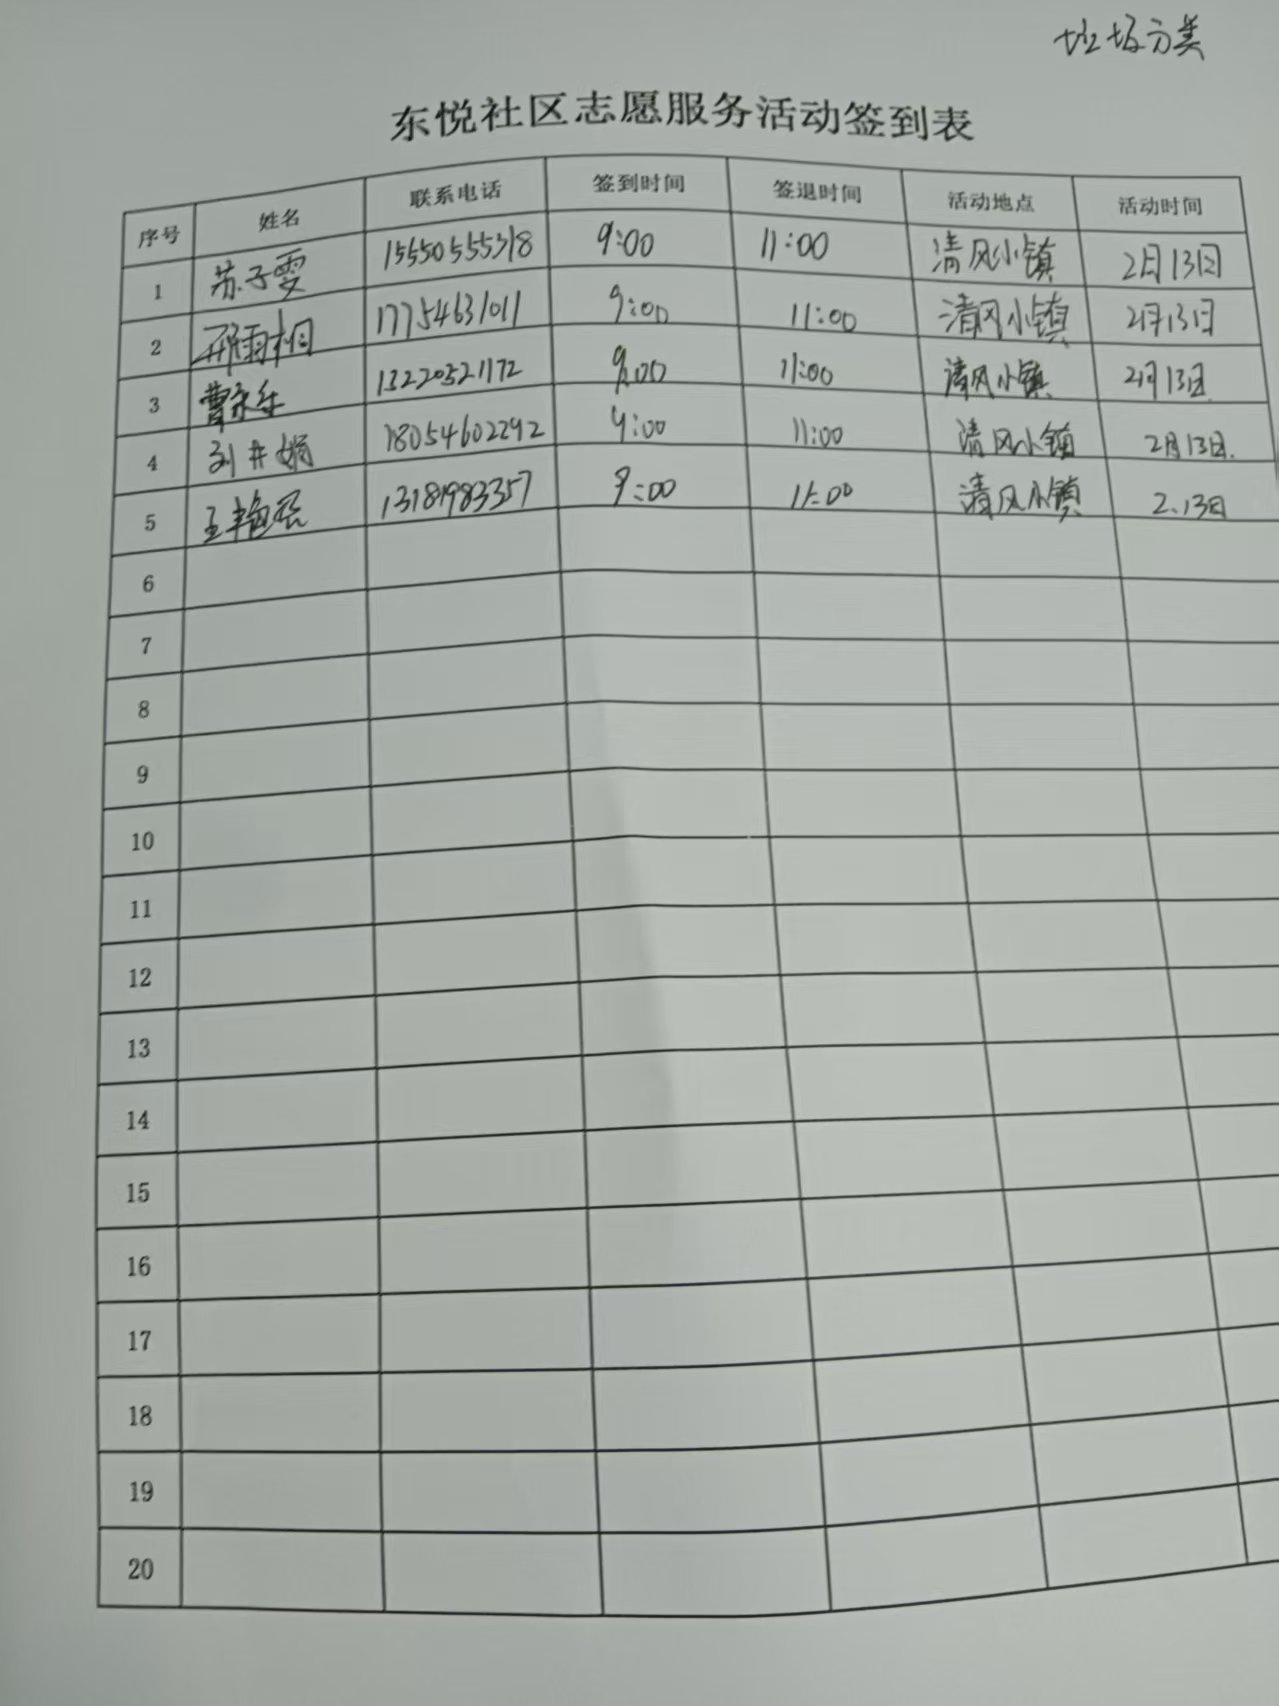 垃圾分类
东悦社区志愿服务活动签到表
序号 姓名 联系电话 签到时间 签退时间 活动地点 活动时间
1 苏子雯 15550555318 9:00 11:00 清风小镇 2月13日
2 邢雨桐 17754631011 9:00 11:00 清风小镇 2月13日
3 曹 13220521172 9:00 11:00 清风小镇 2月13日
4 刘井娟 18054602292 9:00 11:00 清风小镇 2月13日.
5 王艳 13181983357 9:00 11:00 清风小镇 2.13日
6
7
8
9
10
11
12
13
14
15
16
17
18
19
20